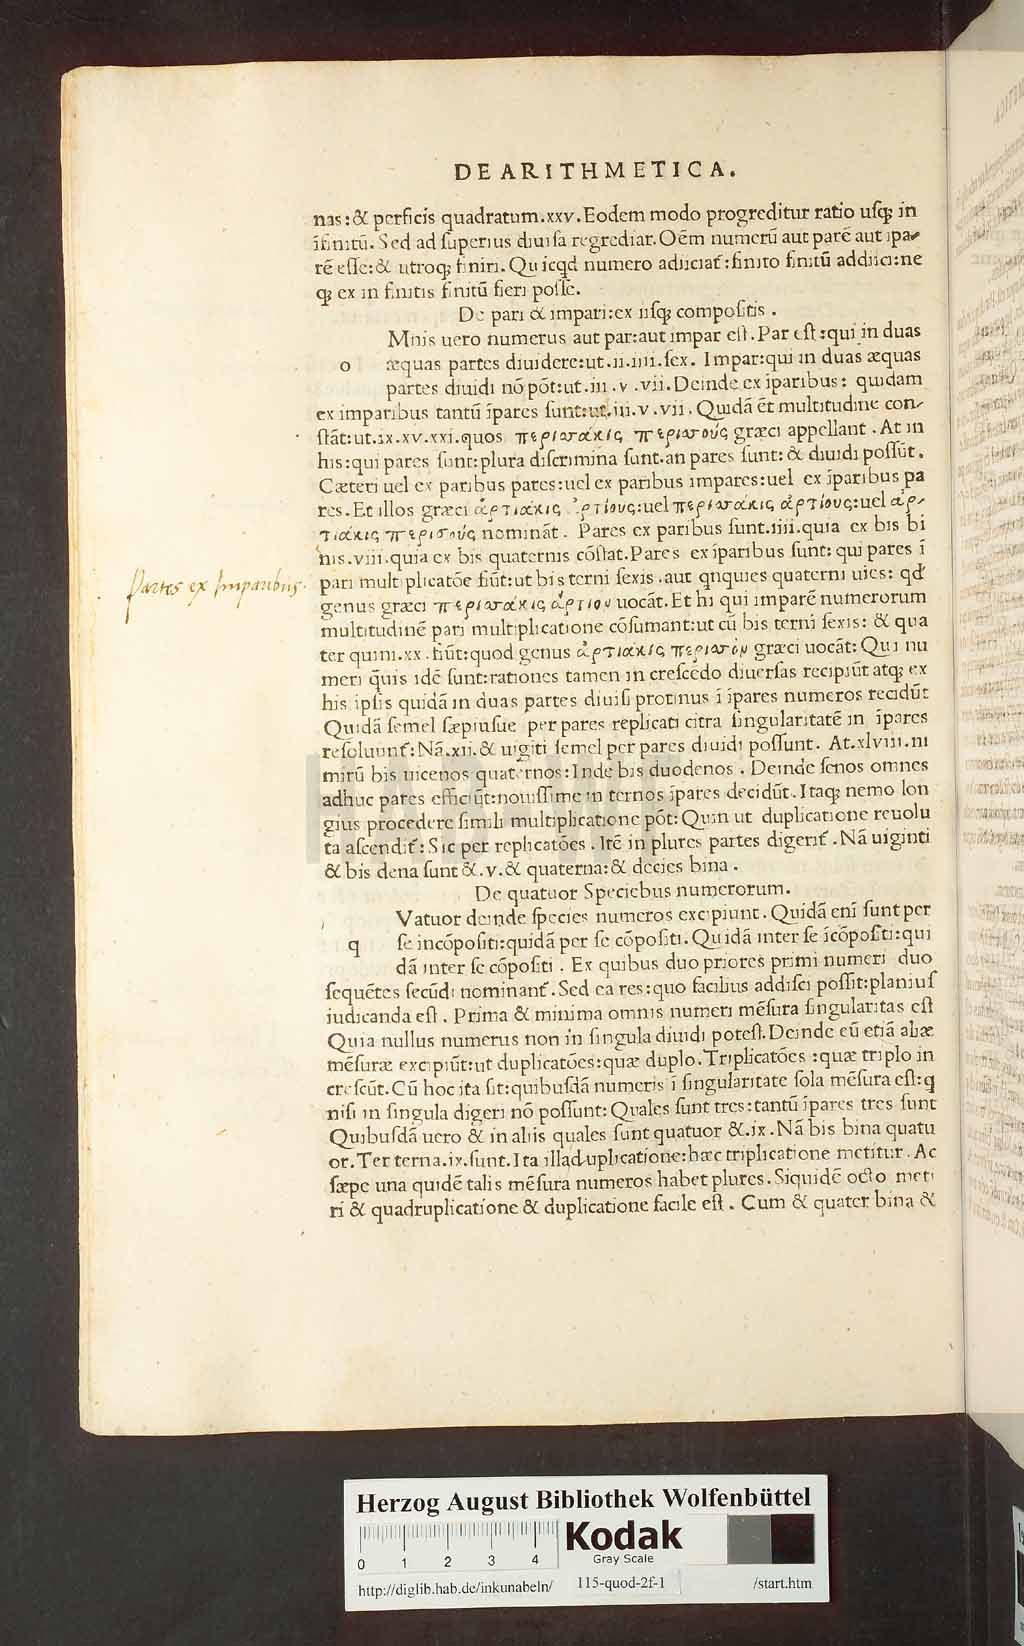 DE ARITHMETICA.
nas:& perficis quadratum.xxv.Eodem modo progreditur ratio usqȝ in
ĩfinitũ. Sed ad superius diuisa regrediar.Oẽm numerũ aut parẽ aut ipa-
rẽ esse:& utroqȝ finiri. Quicqd numero adiiciat̃:finito finitũ addiici:ne
qȝ ex in finitis finitũ fieri posse.
De pari & impari:ex iisqȝ compositis .
Mnis uero numerus aut par:aut impar est.Par est:qui in duas
o æquas partes diuidere:ut.ii.iiii.sex. Impar:qui in duas æquas
partes diuidi nõ põt:ut.iii.v.vii.Deinde ex ĩparibus: quidam
ex imparibus tantũ ĩpares sunt:ut.iii.v.vii. Quidã ẽt multitudine con-
stãt:ut.ix.xv.xxi.quos περισσάκις περισσούς græci appellant . At in
his:qui pares sunt:plura discrimina sunt.an pares sunt: & diuidi possũt.
Cæteri uel ex paribus pares:uel ex paribus impares:uel ex ĩparibus pa
res.Et illos græci ἀρτιάκις ἀρτίους:uel περισσάκις ἀρτίους:uel ἀρ-
τιάκις περισσούς nominãt . Pares ex paribus sunt.iiii.quia ex bis bi
nis.viii.quia ex bis quaternis cõstat.Pares ex ĩparibus sunt: qui pares ĩ
Partes ex Imparibus.
pari multiplicatõe fiũt:ut bis terni sexis.aut qnquies quaterni uies: qđ
genus græci περισσάκις ἀρτιον uocãt.Et hi qui imparẽ numerorum
multitudinẽ pari multiplicatione cõsumant:ut cũ bis terni sexis: & qua
ter quini.xx.fiũt:quod genus ἀρτιακις περισσὸν græci uocãt: Qui nu
meri q̃uis idẽ sunt:rationes tamen in crescẽdo diuersas recipiũt atqȝ ex
his ipsis quidã in duas partes diuisi protinus ĩ ĩpares numeros recidũt
Quidã semel sæpiusue per pares replicati citra singularitatẽ in ĩpares
resoluunt̃: Nã.xii.& uigiti semel per pares diuidi possunt. At.xlviii.ni
mirũ bis uicenos quaternos:Inde bis duodenos . Deinde senos omnes
adhuc pares efficiũt:nouissime in ternos ĩpares decidũt.Itaqȝ nemo lon
gius procedere simili multiplicatione põt: Quin ut duplicatione reuolu
ta ascendit̃: Sic per replicatões . Itẽ in plures partes digerit̃ .Nã uiginti
& bis dena sunt &.v.& quaterna:& decies bina .
De quatuor Speciebus numerorum.
Vatuor deinde species numeros excipiunt. Quidã enĩ sunt per
q se incõpositi:quidã per se cõpositi. Quidã inter se ĩcõpositi:qui
dã inter se cõpositi . Ex quibus duo priores primi numeri duo
sequẽtes secũdi nominant̃. Sed ea res:quo facilius addisci possit:planius
iudicanda est . Prima & minima omnis numeri mẽsura singularitas est
Quia nullus numerus non in singula diuidi potest.Deinde eũ etiã aliæ
mẽsuræ excipiũt:ut duplicatões:quæ duplo. Triplicatões :quæ triplo in
crescũt. Cũ hoc ita sit:quibusdã numeris ĩ singularitate sola mẽsura est:q
nisi in singula digeri nõ possunt: Quales sunt tres:tantũ ĩpares tres sunt
Quibusdã uero & in aliis quales sunt quatuor &.ix. Nã bis bina quatu
or.Ter terna.ix.sunt.Ita illa duplicatione:hæc triplicatione metitur. Ac
sæpe una quidẽ talis mẽsura numeros habet plures. Siquidẽ octo meti
ri & quadruplicatione & duplicatione facile est . Cum & quater bina &
HAB-WF
Herzog August Bibliothek Wolfenbüttel
Kodak
Gray Scale
0 1 2 3 4
http://diglib.hab.de/inkunabeln/ 115-quod-2f-1 /start.htm